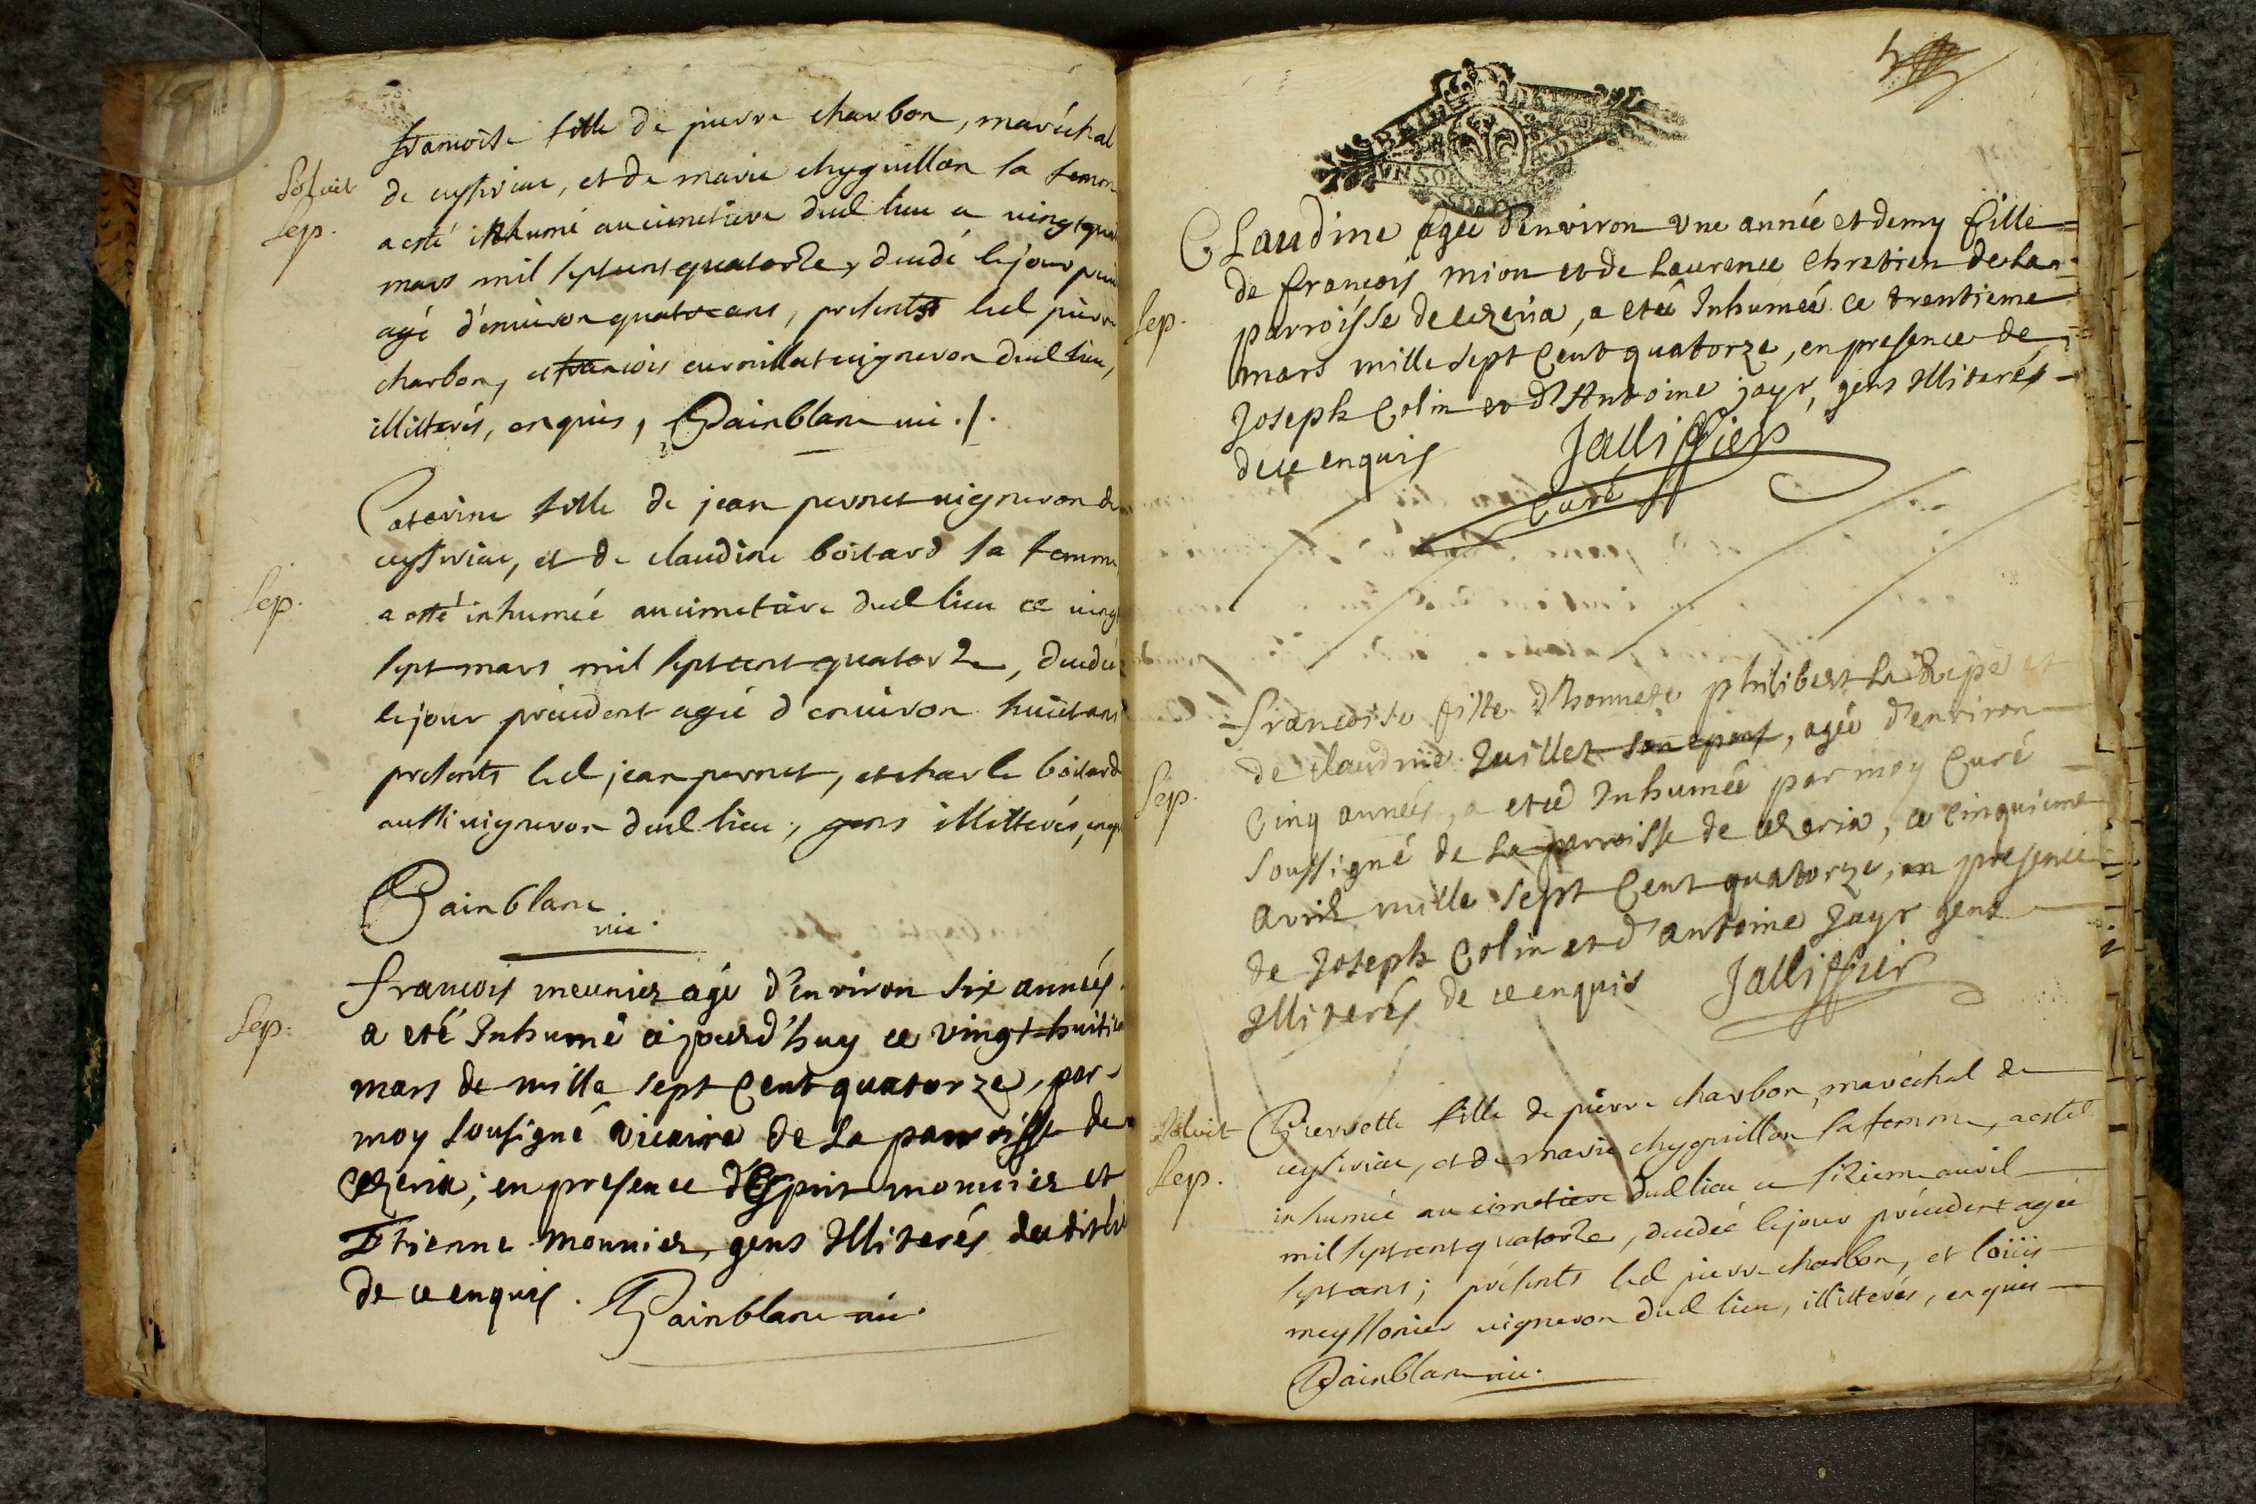 Solvit
Sep.
francoise fille de pierre charbon, maréchal
de ceyseriac, et de marie chyguillon sa femme
a esté inhumé au cimetiere dud lieu ce vingt
mars mil septcent quatorze, decedé le jour
agé d'environ quatre ans, presents led pierre
charbon, et francois curnillat vigneron dud lieu,
illitterés, enquis, Painblanc vic.
Sep.
Caterine fille de jean pernet vigneron de
ceyseriac, et de claudine boitard sa femme
a esté inhumeé au cimetiere dud lieu ce vingt
sept mars mil septcent quatorze, decedeé
le jour précedent ageé d'environ huit ans
presents led jean pernet, et charle boitard
aussi vigneron dud lieu, gens illitterés, enquis
Painblanc
vic.
Sep.
francois meunier agé d'environ six années
a eté Inhumé aijourd'huy ce vingt-huitie
mars de mille sept Cent quatorze, par
moy sousigné vicaire de La parroisse de
Cezeria; en presence d'Esprit monnier et
Etienne monnier, gens Illiterés
de ce enquis. Painblanc vic.
Claudine agée d'environ vne année et demy fille
Sep.
de francois mion et de Laurence Chretien de La
parroisse de cezeria, a eteé Inhumeé ce trentieme
mars mille sept Cent quatorze, en presence de
Joseph Colin et d'Antoine jayr, gens Illiterés
de ce enquis Jalliffier
Curé
francoise fille d'honnete philibert La Repe et
Sep.
de claudine Juillet son epous, ageé d'environ
Cinq années, a eteé Inhumeé par moy Curé
soussigné de La parroisse de cezeria, ce cinquieme
avril mille sept Cent quatorze, en presence
de Joseph Colin et d'antoine Jayr gens
Illiterés de ce enquis Jalliffier
Solvit
Sep.
Pierrette fille de pierre charbon, maréchal de
ceyseriac, et de marie chyguillon sa femme, a esté
inhumée au cimetiere dud lieu ce sizieme avril
mil septcent quatorze, decedeé le jour précedent ageé
sept ans; présents led pierre charbon, et loüis
meyssonier vigneron dud lieu, illitterés, enquis
Painblanc vic.